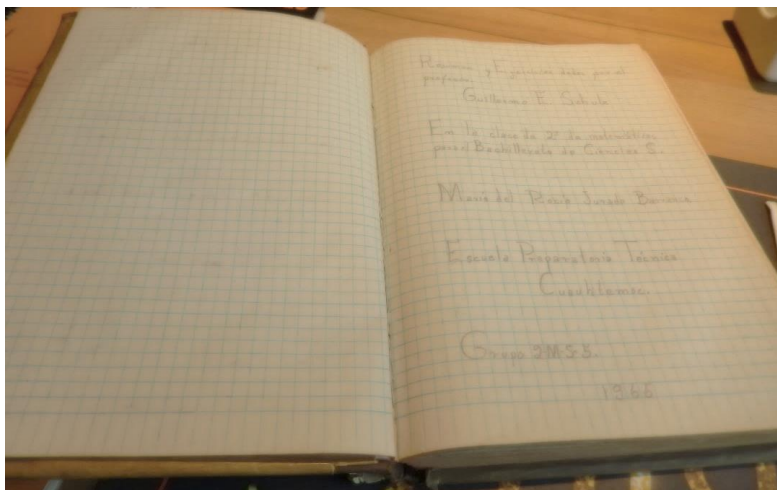 Resumen y Ejercicios dados por el
profesor:
Guillermo E.
En la clase de 2º de matemáticas
para el Bachillerato de Ciencias S.
María del Rocío Jurado
Escuela Preparatoria Técnica
Cuauhtemoc.
Grupo 2M-S-5.
1966